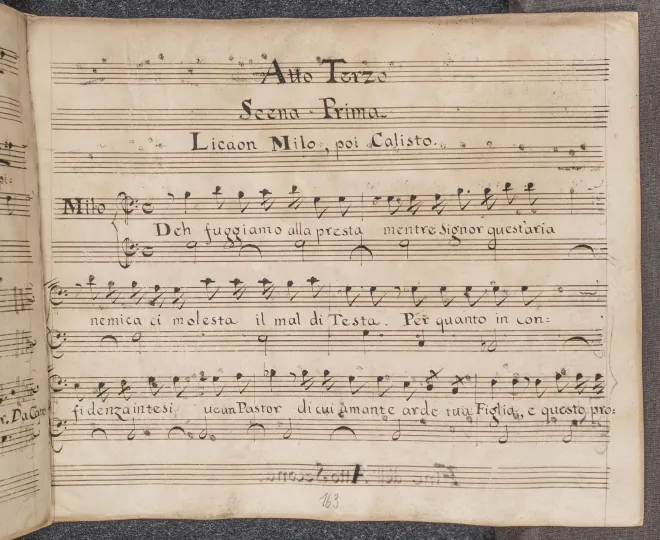 Atto Terzo
Scena Prima
Licaon Milo, poi Calisto.
Milo
Deh fuggiamo alla presta mentre Signor quest'aria
nemica ci molesta il mal di Testa. Per quanto in con=
fidenza intesi ue un Pastor di cui amante arde tua Figlia, e questo pro:
Fine dell'Atto Secondo
163
pi: